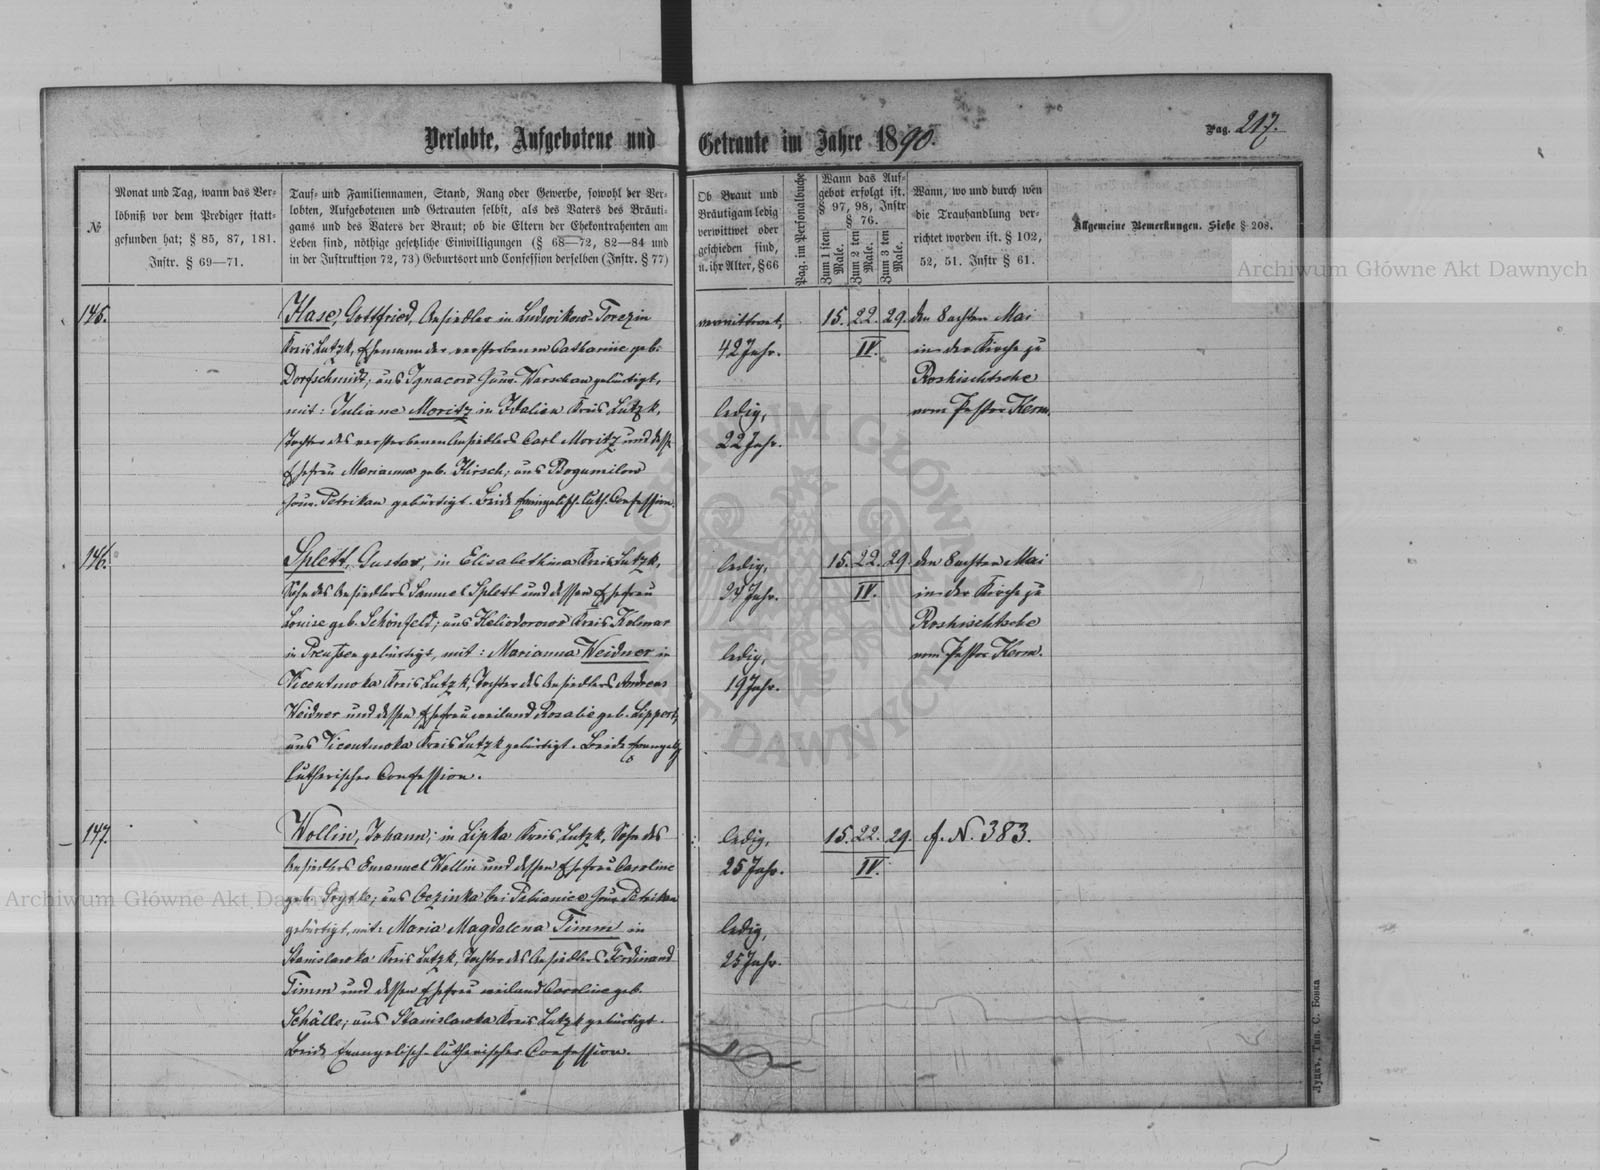 Verlobte, Aufgebotene und Getraute im Jahre 1890.
Pag. 217.
№
Monat und Tag, wann das Ver-
löbniß vor dem Prediger statt-
gefunden hat; § 85, 87, 181.
Instr. § 69—71.
Tauf- und Familiennamen, Stand, Rang oder Gewerbe, sowohl der Ver-
lobten, Aufgebotenen und Getrauten selbst, als des Vaters des Bräuti-
gams und des Vaters der Braut; ob die Eltern der Ehekontrahenten am
Leben sind, nöthige gesetzliche Einwilligungen (§ 68—72, 82—84 und
in der Instruktion 72, 73) Geburtsort und Confession derselben (Instr. § 77)
Ob Braut und
Bräutigam ledig
verwittwet oder
geschieden sind,
u. ihr Alter, § 66
Pag. im Personalbuche
Wann das Auf-
gebot erfolgt ist.
§ 97, 98, Instr
§ 76.
Zum 1 sten Male.
Zum 2 ten Male.
Zum 3 ten Male.
Wann, wo und durch wen
die Trauhandlung ver-
richtet worden ist. § 102,
52, 51. Instr § 61.
Allgemeine Bemerkungen. Siehe § 208.
145.
Hase, Gottfried, Ansiedler in Ludwikow-Torezin
Kreis Lutzk, Ehemann der verstorbenen Catharine geb.
Dorfschmidt; aus Ignacow Gouv. Warschau gebürtigt,
mit: Juliane Moritz in Idalien Kreis Lutzk,
Tochter des verstorbenen Ansiedlers Carl Moritz und dess.
Ehefrau Marianna geb. Hirsch; aus Bogumilow
Gouv. Petrikau gebürtigt. Beide Evangelisch-luth. Confession.
verwittwet,
42 Jahr.
ledig,
22 Jahr.
15. 22. 29.
IV.
den 8 achten Mai
in der Kirche zu
Roshischtsche
vom Pastor Kerm.
146.
Splett, Gustav, in Elisabethina Kreis Lutzk,
Sohn des Ansiedlers Samuel Splett und dessen Ehefrau
Louise geb. Schönfeld; aus Heliodorowo Kreis Kolmar
in Preußen gebürtigt, mit: Marianna Weidner in
Vicentmoka Kreis Lutzk, Tochter des Ansiedlers Andreas
Weidner und dessen Ehefrau weiland Rosalie geb. Lippert;
aus Vicentmoka Kreis Lutzk gebürtigt. Beide Evangelisch
lutherischer Confession.
ledig,
24 Jahr.
ledig,
19 Jahr.
15. 22. 29.
IV.
den 8 achten Mai
in der Kirche zu
Roshischtsche
vom Pastor Kerm.
147.
Wollin, Johann; in Lipka Kreis Lutzk, Sohn des
Ansiedlers Emanuel Wollin und dessen Ehefrau Caroline
geb. aus bei Pabianice Gouv. Petrikau
gebürtigt, mit: Maria Magdalena Timm in
Stanislawka Kreis Lutzk, Tochter des Ansiedlers Ferdinand
Timm und dessen Ehefrau weiland Caroline geb.
Schälke; aus Stanislawka Kreis Lutzk gebürtigt.
Beide Evangelisch-lutherischer Confession.
ledig,
25 Jahr.
ledig,
25 Jahr.
15. 22. 29.
IV.
f. N. 383.
Луцкъ, Тип. С. Бонка
Archiwum Główne Akt Dawnych
Archiwum Główne Akt Dawnych
ARCHIWUM GŁÓWNE AKT DAWNYCH